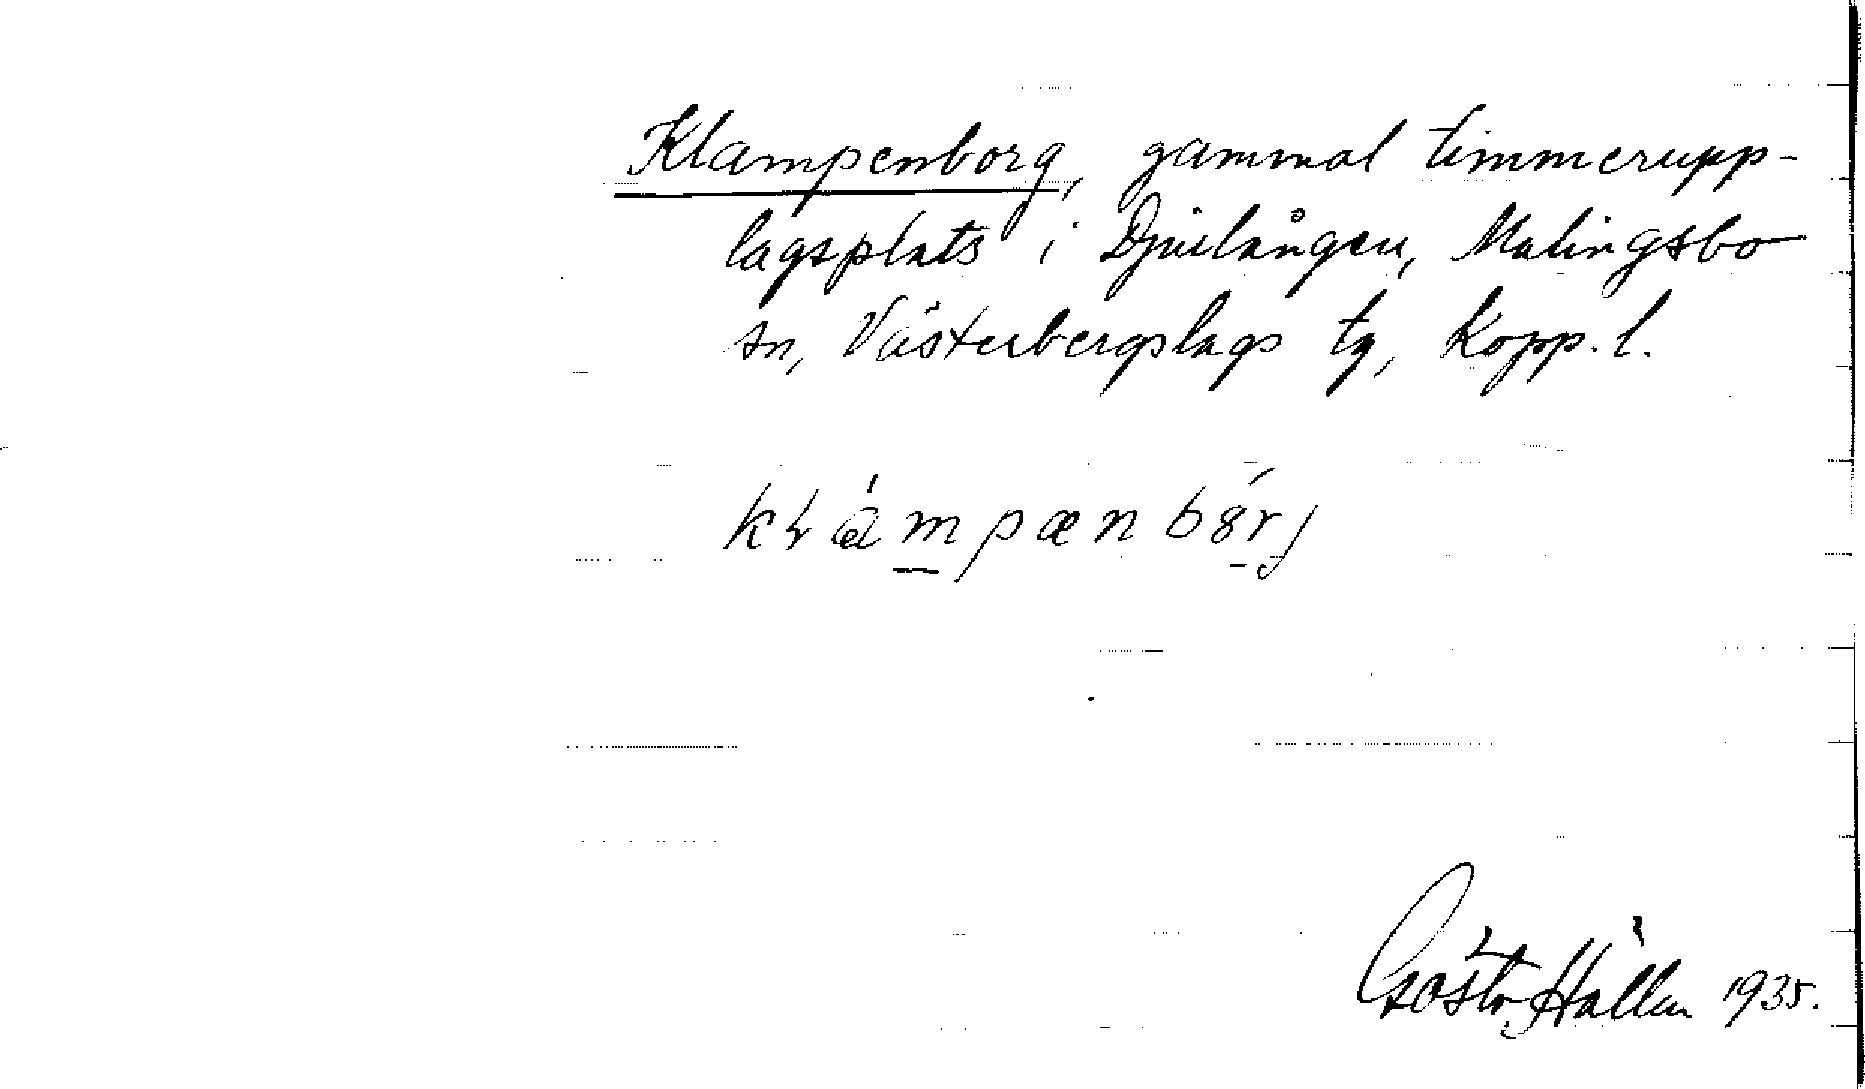 Klampenborg, gammal timmerupp-
lagsplats i Djurlången, Malingsbo
sn, Västerbergslags tg, Kopp. l.
Gösta Hallen 1935.